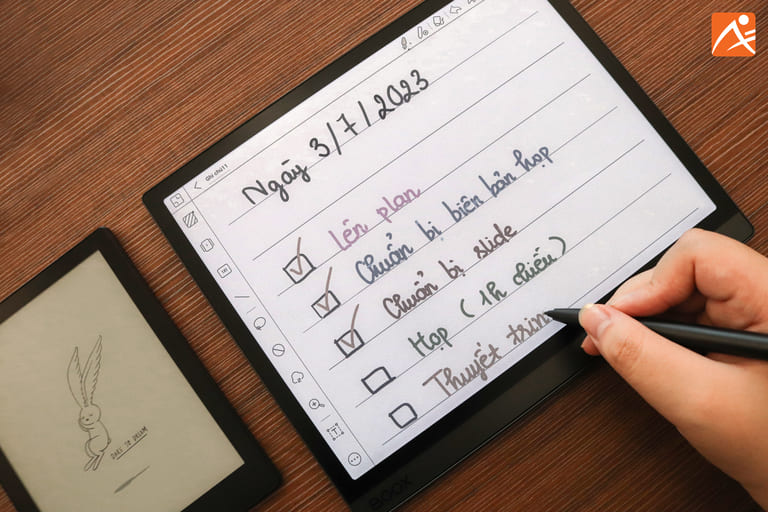 Ghi chú 11
Ngày 3/7/2023
lên plan
Chuẩn bị biên bản họp
Chuẩn bị slide
Họp (1h chiều)
Thuyết trìn
BOOX
DARE TO DREAM